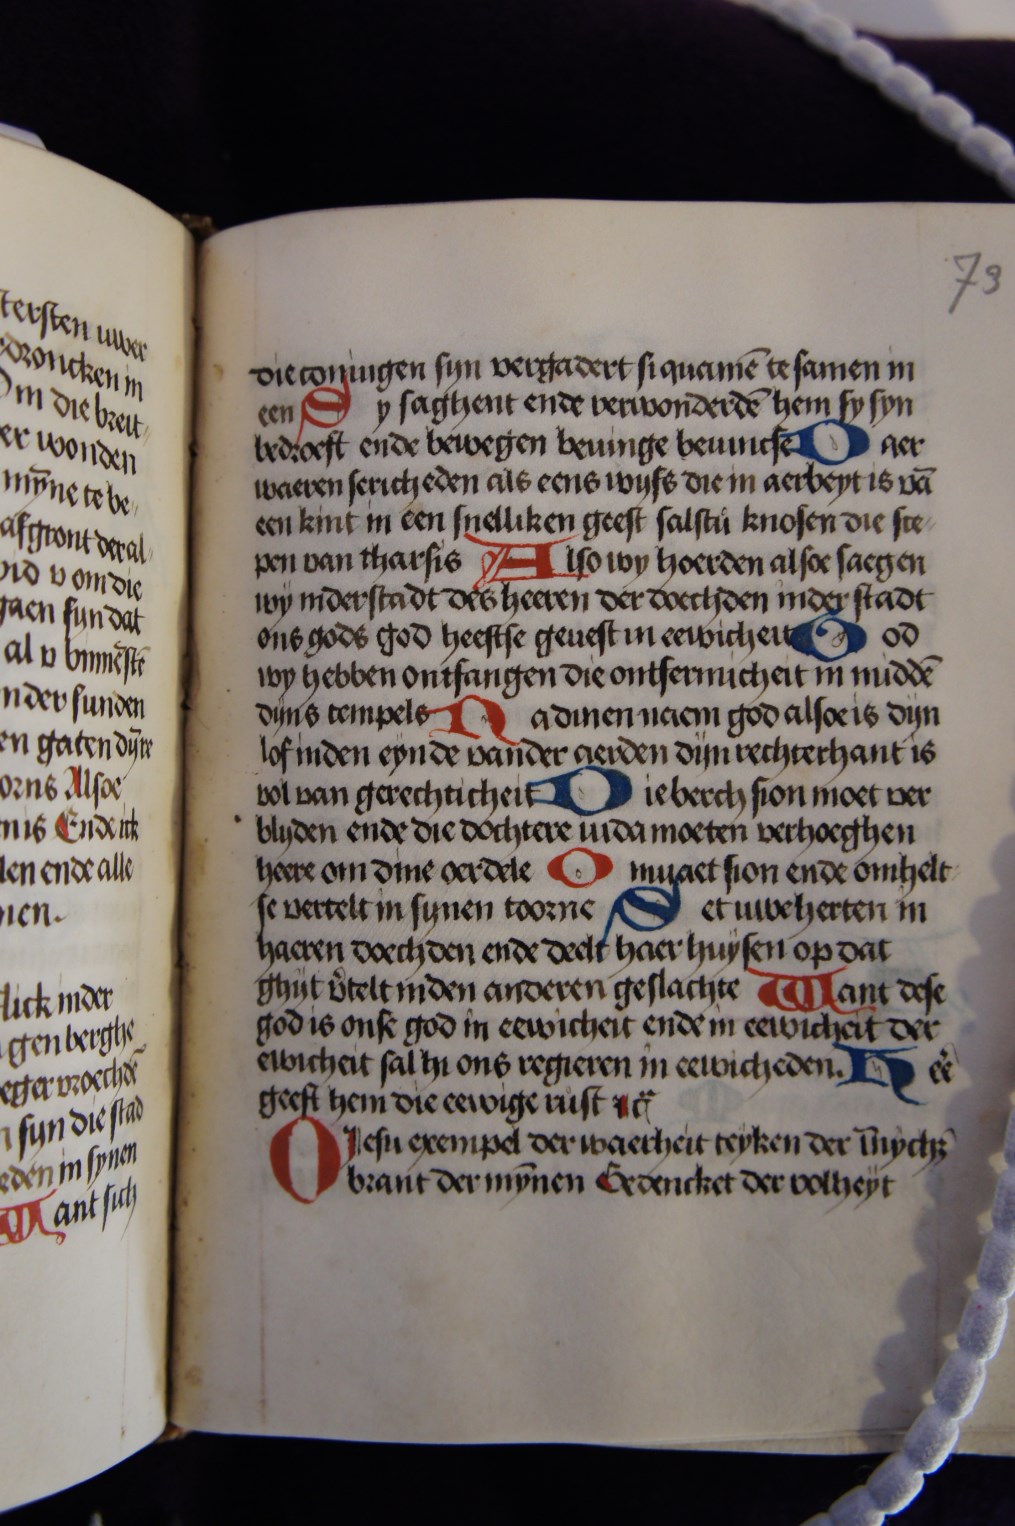 tersten uwer
droncken in
Om die breit
er wonden
mȳne te be
afgront der al
vid v om die
gaen syn dat
al v binnēstē
nder sunden
en gaten dȳre
orns Alsoe
nis Ende ick
len ende alle
men.
lick inder
gen berghe
eger vroechdē
syn die stad
eden in synen
Want sich
73
die coningen syn vergadert si quamē te samen in
een Sy saghent ende verwonderdē hem sy syn
bedroeft ende bewegen beuinge beuincse Daer
waeren sericheden als eens wyfs die in aerbeyt is vā
een kint in een snelliken geest salstu knosen die sce
pen van tharsis Also wy hoerden alsoe saegen
wy inder stadt des heeren der doechden inder stadt
ons gods god heeftse geuest in eewicheit God
wy hebben ontfangen die ontfermicheit in middē
dyns tempels Na dinen naem god alsoe is dyn
lof inden eynde vander aerden dyn rechterhant is
vol van gerechticheit Die berch sion moet ver
blyden ende die dochtere iuda moeten verhoeghen
heere om dine oerdele Omuaet sion ende omhelt
se vertelt in synen toorne Set uwe herten in
haeren doechden ende deelt haer huysen op dat
ghyt v̄telt inden anderen geslachte Want dese
god is onse god in eewicheit ende in eewicheit der
ewicheit sal hi ons regieren in eewicheden. Heē
geeft hem die eewige rust
O Iesu exempel der waerheit teyken der
brant der mȳnen Gedencket der volheyt